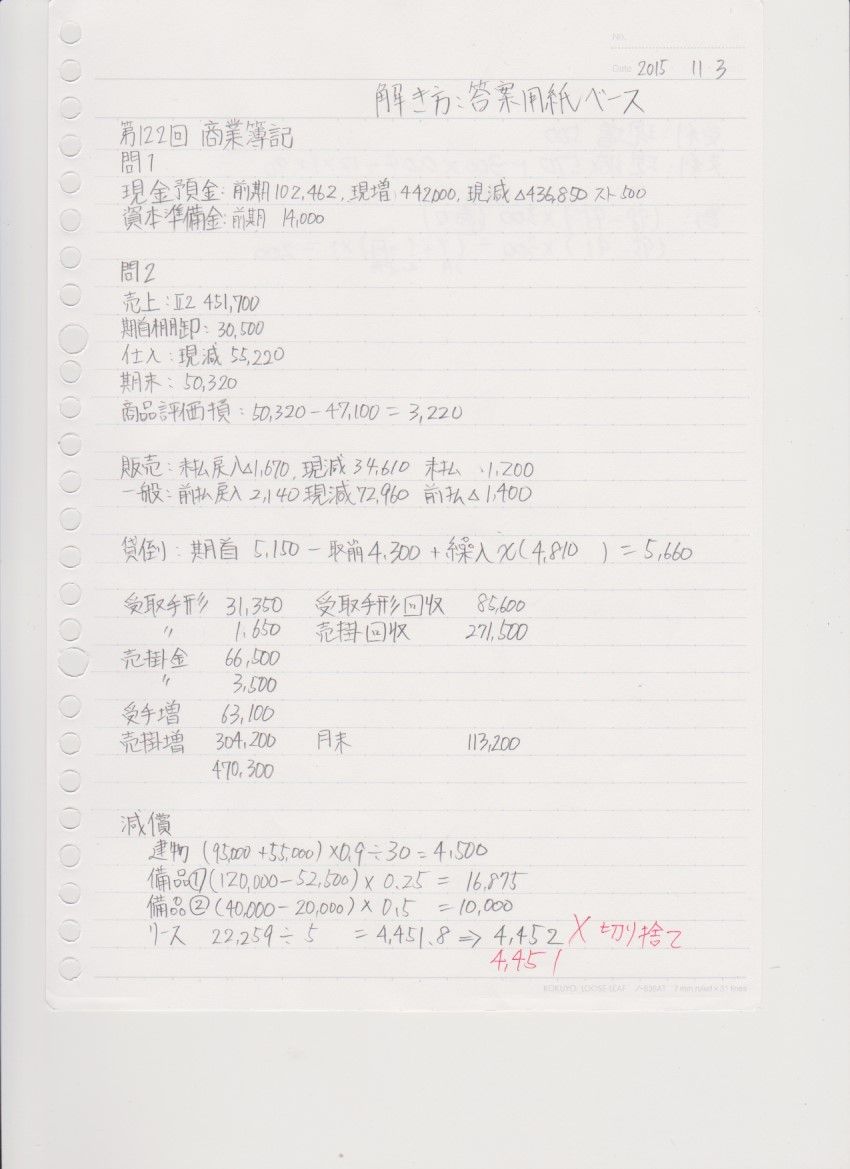 No.
Date 2015 11 3
解き方:答案用紙ベース
第122回 商業簿記
問1
現金預金:前期102,462, 現増442,000, 現減△436,850 スト500
資本準備金:前期 14,000
問2
売上:Ⅱ2 451,700
期首棚卸:30,500
仕入:現減 55,220
期末:50,320
商品評価損:50,320-47,100=3,220
販売:未払戻入△1,670, 現減34,610 未払 1,200
一般:前払戻入2,140 現減72,960 前払△1,400
貸倒:期首 5,150-取崩4,300+繰入x(4,810 )=5,660
受取手形 31,350 受取手形回収 85,600
〃 1,650 売掛回収 271,500
売掛金 66,500
〃 3,500
受手増 63,100
売掛増 304,200 月末 113,200
470,300
減償
建物 (95,000+55,000)×0.9÷30=4,500
備品①(120,000-52,500)×0.25=16,875
備品②(40,000-20,000)×0.5=10,000
リース 22,259÷5=4,451.8⇒4,452 × 切り捨て
4,451
KOKUYO LOOSE-LEAF ノ-836AT 7 mm ruled×31 lines